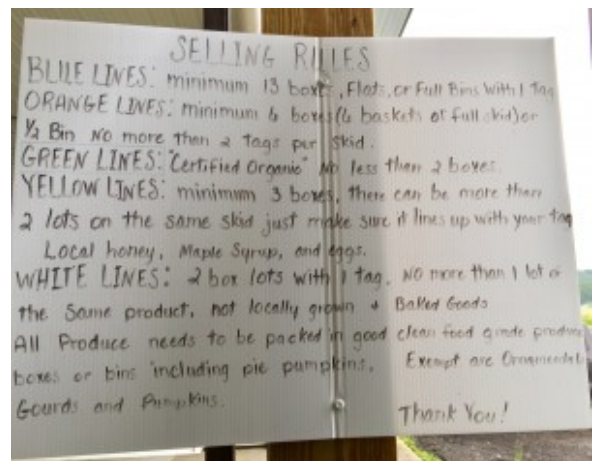 SELLING RULES
BLUE LINES: minimum 13 boxes, Flats, or Full Bins With 1 Tag
ORANGE LINES: minimum 6 boxes (6 baskets or full skid) or
½ Bin No more than 2 Tags per skid.
GREEN LINES: "Certified Organic" No less than 2 boxes
YELLOW LINES: minimum 3 boxes, there can be more than
2 lots on the same skid just make sure it lines up with your tag
Local honey, Maple Syrup, and eggs.
WHITE LINES: 2 box lots with 1 tag. NO more than 1 lot of
the same product, not locally grown + Baked Goods
All Produce needs to be packed in good clean food grade produce
boxes or bins including pie pumpkins. Exempt are Ornamental
Gourds and Pumpkins.
Thank You!